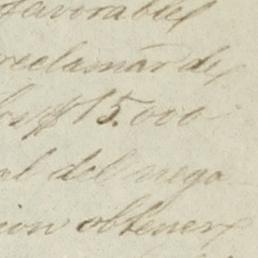 favorables
reclamar de
los $15.000
al del nego
ion obtener